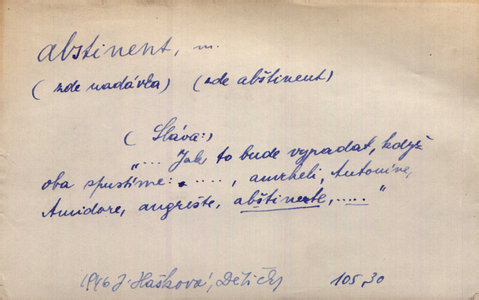 abstinent, m.
(zde nadávka) (zde abštinent)
(Sláva:)
"... Jak to bude vypadat, když
oba spustíme: ....., amrheli, Antoníne,
Amidore, angrešte, abštinente, ....."
1946 J. Hašková, Dětičky 105,30